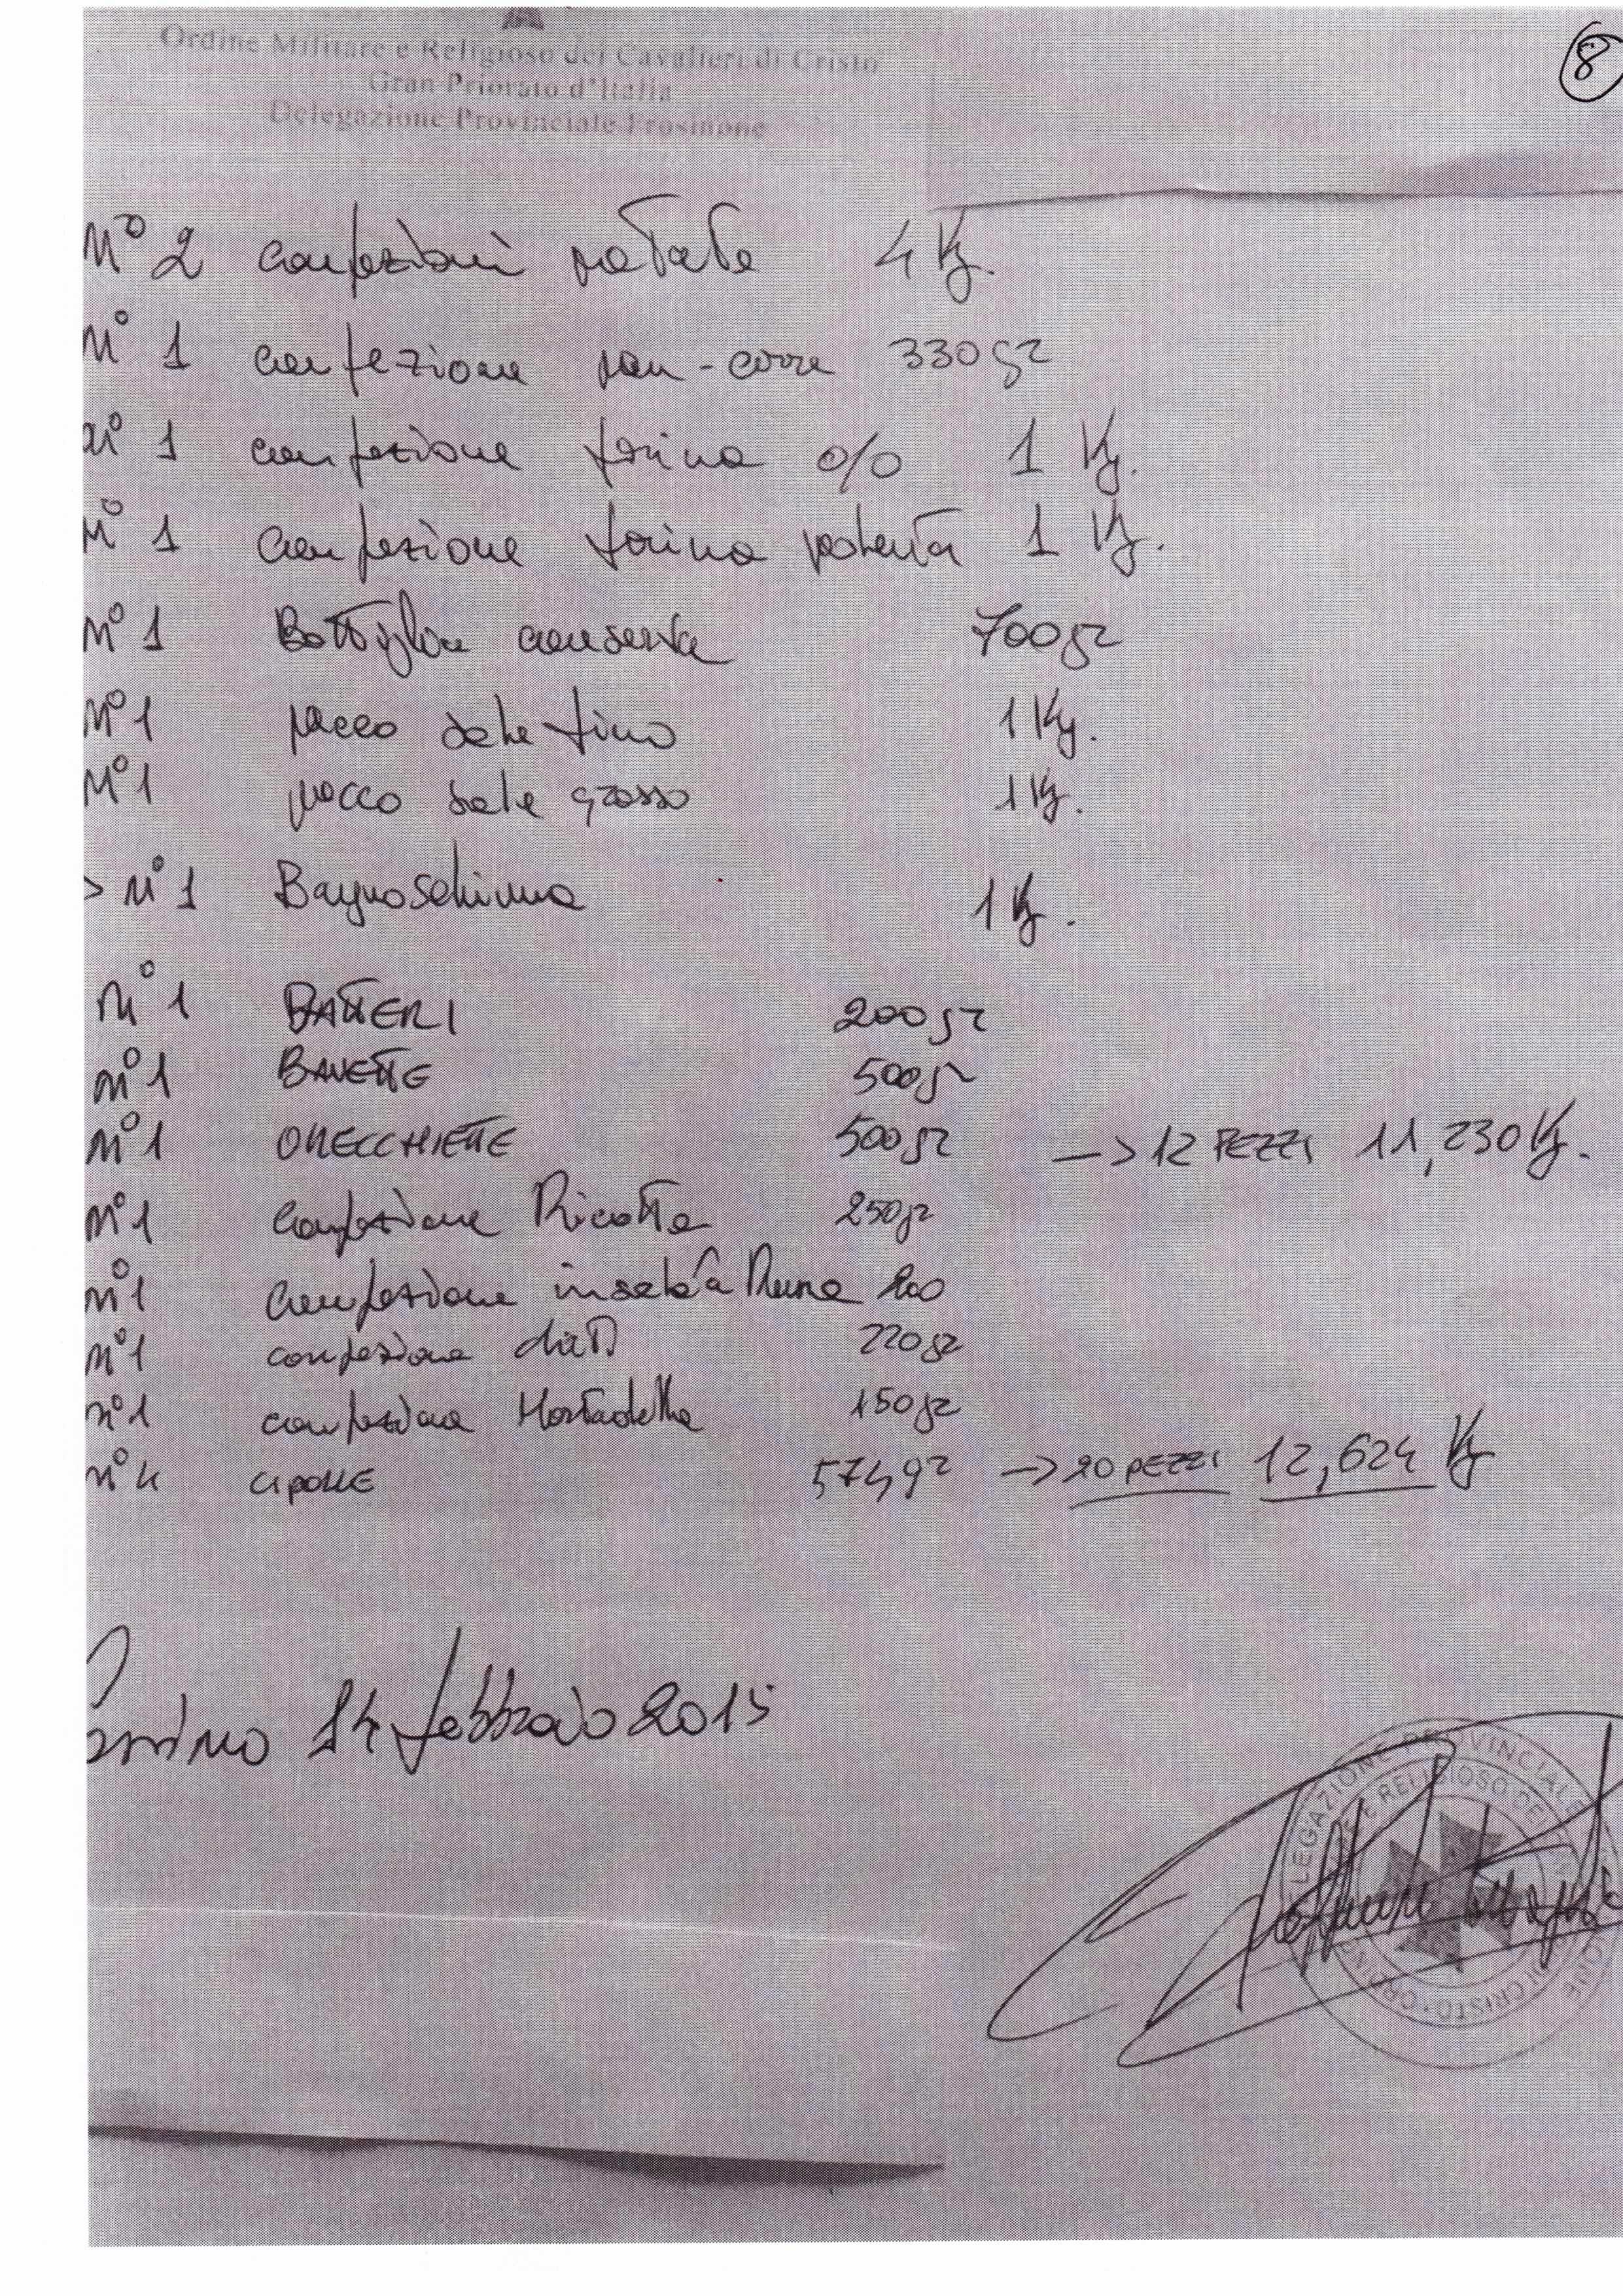 Ordine Militare e Religioso dei Cavalieri di Cristo
Gran Priorato d'Italia
Delegazione Provinciale Frosinone
8
N° 2 confezioni patate 4 Kg.
N° 1 confezione pan-corre 330 gr
N° 1 confezione farina 0/0 1 Kg.
N° 1 confezione farina polenta 1 Kg.
N° 1 Bottiglia conserva 700 gr
N° 1 pacco sale fino 1 Kg.
N° 1 pacco sale grosso 1 Kg.
> N° 1 Bagnoschiuma 1 Kg.
N° 1 200 gr
N° 1 BAVETTE 500 gr
N° 1 ORECCHIETTE 500 gr -> 12 PEZZI 11,230 Kg.
N° 1 confezione Ricotta 250 gr
N° 1 confezione insalata 200
N° 1 confezione 220 gr
N° 1 confezione Mortadella 150 gr
N° 4 CIPOLLE 574 gr -> 20 PEZZI 12,624 Kg
Cassino 14 febbraio 2015
DELEGAZIONE PROVINCIALE
E RELIGIOSO DEI
DI CRISTO • ORDINE